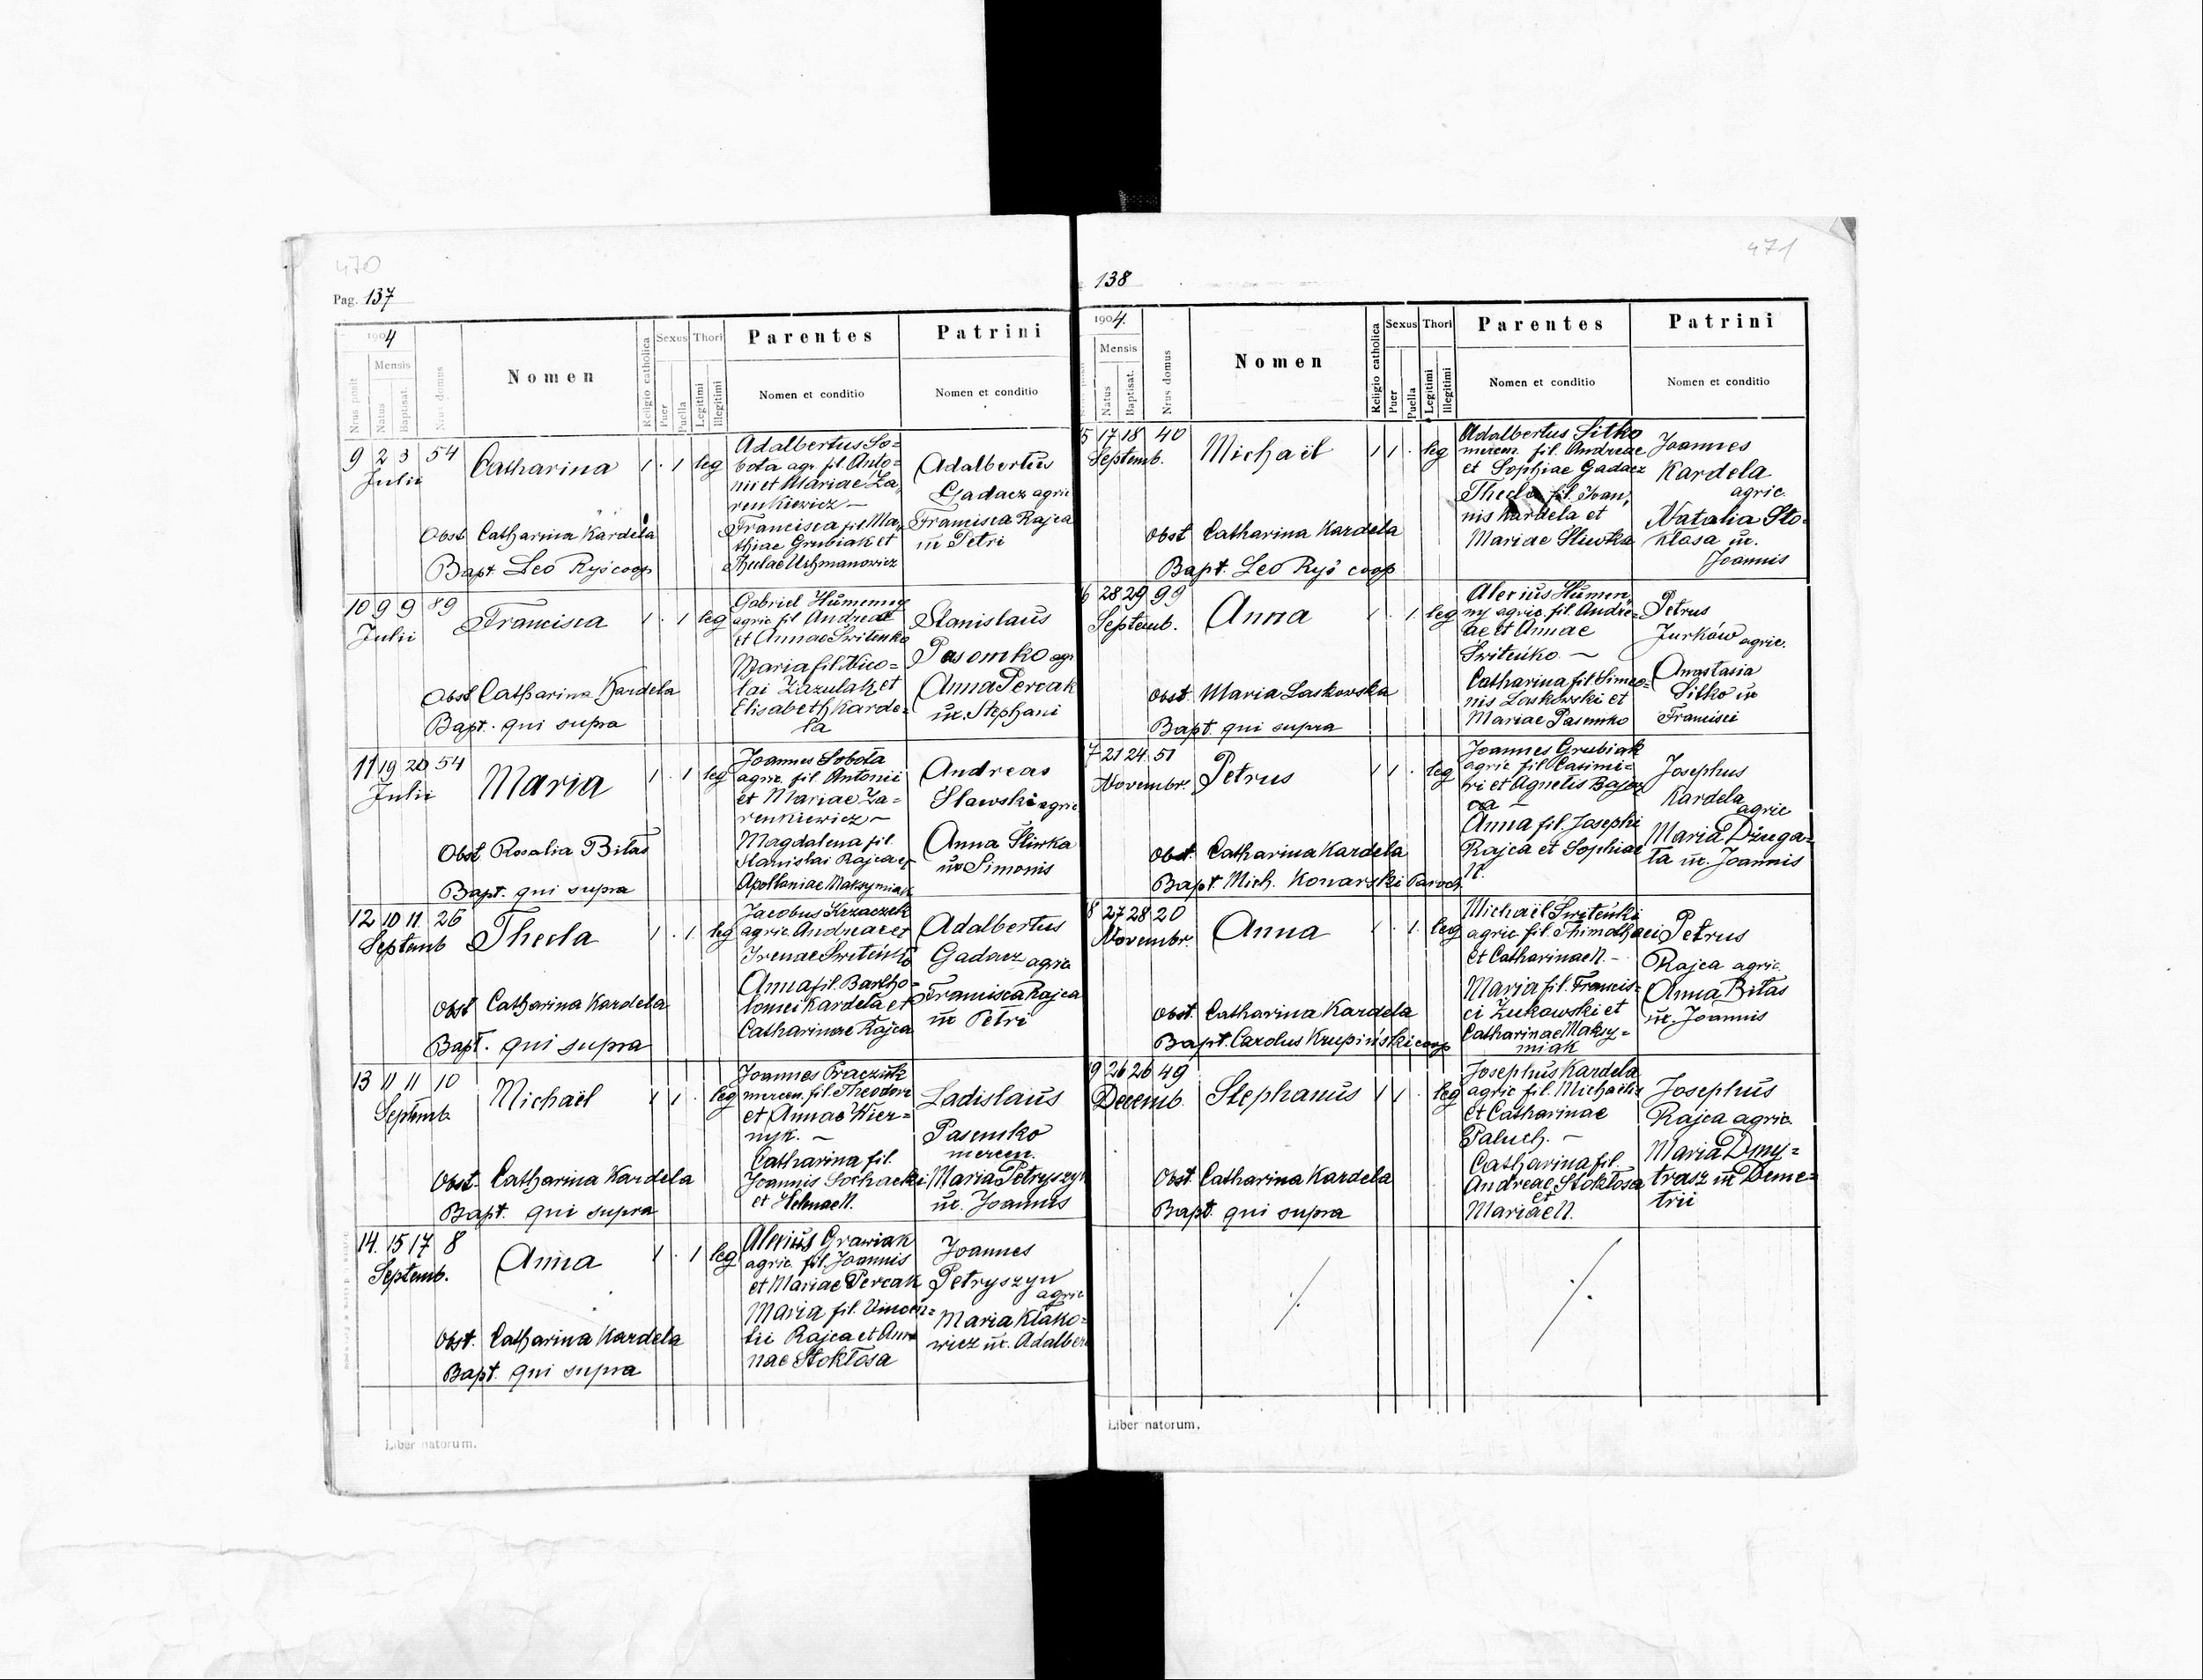 470
Pag. 137
1904
Mensis
Nrus posit
Natus
Baptisat.
Nrus domus
Nomen
Religio catholica
Sexus
Puer
Puella
Thori
Legitimi
Illegitimi
Parentes
Nomen et conditio
Patrini
Nomen et conditio
9 2 3 54 Catharina 1 . 1 leg
Julii
Adalbertus So=
bota agr. fil. Anto=
nii et Mariae Za,
renkiewicz –
Francisca fil. Ma,
thiae Grubiak et
Theclae Uchmanowicz
Adalbertus
Gadacz agric
Francisca Rajca
ux Petri
Obst Catharina Kardela
Bapt Leo Ryś coop
10 9 9 89 Francisca 1 . 1 leg
Julii
Gabriel Humenny
agric fil Andreae
et Annae Switenko
Maria fil. Nico=
lai Zazulak et
Elisabeth Karde=
la
Stanislaus
Pasomko agr
Anna Percak
ux. Stephani
Obst Catharina Kardela
Bapt. qui supra
11 19 20 54 Maria 1 . 1 leg
Julii
Joannes Sobota
agric. fil. Antonii
et Mariae Za=
renkiewicz –
Magdalena fil.
Stanislai Rajca et
Apolloniae Maksymiak
Andreas
Sławski agric
Anna Śliwka
ux Simonis
Obst Rosalia Bilas
Bapt. qui supra
12 10 11 26 Thecla 1 . 1 leg
Septemb
Jacobus Krzaczek
agric. Andreae et
Irenae Switeńko
Anna fil. Bartho=
lomei Kardela et
Catharinae Rajca
Adalbertus
Gadacz agric
Francisca Rajca
ux Petri
Obst Catharina Kardela
Bapt. qui supra
13 11 11 10 Michaël 1 1 . leg
Septemb.
Joannes Praczuk
mercen. fil. Theodori
et Annae Wier=
nyk. –
Catharina fil.
Joannis Sochacki
et Helenae N.
Ladislaus
Pasemko
mercen.
Maria Petryszyn
ux. Joannis
Obst. Catharina Kardela
Bapt. qui supra
14. 15 17 8 Anna 1 . 1 leg
Septemb.
Alexius Grawiak
agric. fil. Joannis
et Mariae Percak
Maria fil. Vincen=
tii Rajca et An
nae Stokłosa
Joannes
Petryszyn
agric
Maria Kłako=
wicz ux. Adalber
Obst. Catharina Kardela
Bapt. qui supra
Liber natorum.
471
138
1904.
Mensis
Natus
Baptisat.
Nrus domus
Nomen
Religio catholica
Sexus
Puer
Puella
Thori
Legitimi
Illegitimi
Parentes
Nomen et conditio
Patrini
Nomen et conditio
5 17 18 40 Michaël 1 1 . leg
Septemb.
Adalbertus Sitko
mercen. fil. Andreae
et Sophiae Gadacz
Thecla fil. Joan,
nis Kardela et
Mariae Śliwka
Joannes
Kardela
agric.
Natalia Sto=
kłosa ux.
Joannis
Obst Catharina Kardela
Bapt. Leo Ryś coop
6 28 29 99 Anna 1 . 1. leg
Septemb.
Alexius Humen,
ny agric. fil. Andre=
ae et Annae
Switeńko. –
Catharina fil. Simeo=
nis Laskowski et
Mariae Pasemko
Petrus
Jurków agric.
Anastasia
Sitko ux
Francisci
Obst. Maria Laskowska
Bapt. qui supra
7 21 24 51 Petrus 1 1 . leg
Novembr.
Joannes Grubiak
agric fil Casimi=
ri et Agnetis Bajor
ca –
Anna fil. Josephi
Rajca et Sophiae
N.
Josephus
Kardela
agric
Maria Dżuga=
ła ux. Joannis
Obst. Catharina Kardela
Bapt. Mich. Konarski Paroch.
8 27 28 20 Anna 1 . 1. leg
Novembr.
Michaël Switeńki
agric. fil. Thimothaei
et Catharinae N. –
Maria fil. Francis=
ci Żukowski et
Catharinae Maksy=
miak
Petrus
Rajca agric.
Anna Bilas
ux. Joannis
Obst. Catharina Kardela
Bapt. Carolus Krupiński coop
9 26 26 49 Stephanus 1 1 . leg
Decemb.
Josephus Kardela
agric fil. Michaëlis
et Catharinae
Paluch. –
Catharina fil.
Andreae Stokłosa
et
Mariae N.
Josephus
Rajca agric.
Maria Dmy=
trasz ux Deme=
trii
Obst. Catharina Kardela
Bapt. qui supra
Liber natorum.